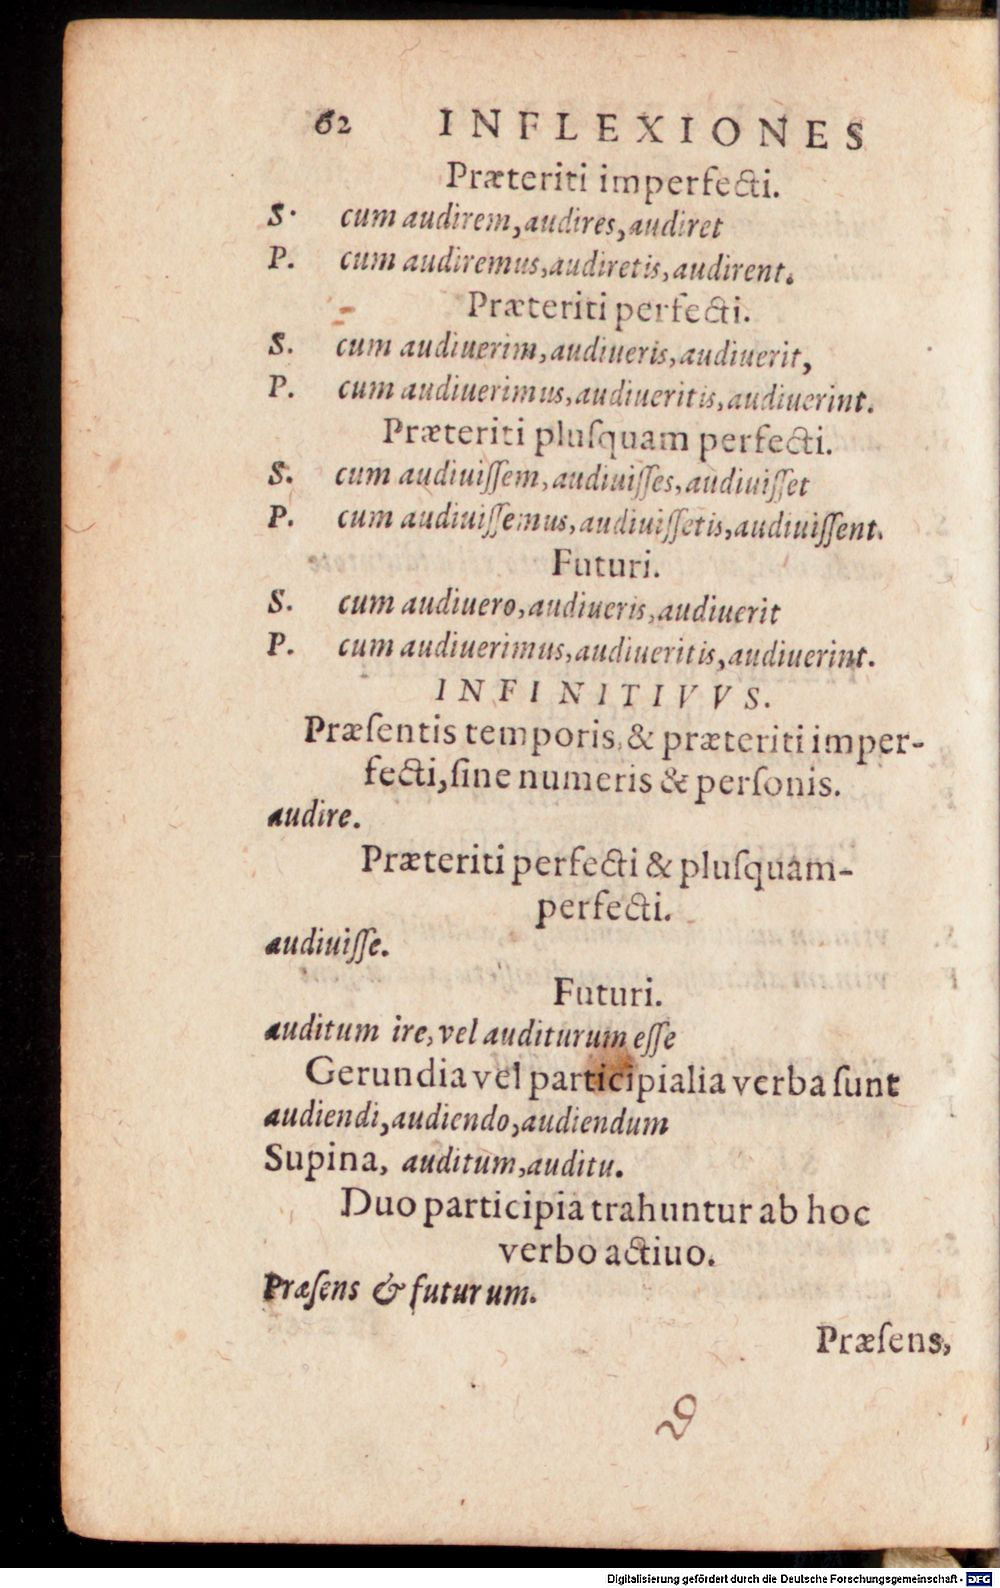 62 INFLEXIONES
Præteriti imperfecti.
S. cum audirem, audires, audiret
P. cum audiremus, audiretis, audirent.
Præteriti perfecti.
S. cum audiuerim, audiueris, audiuerit,
P. cum audiuerimus, audiueritis, audiuerint.
Præteriti pluſquam perfecti.
S. cum audiuiſſem, audiuiſſes, audiuiſſet
P. cum audiuiſſemus, audiuiſſetis, audiuiſſent.
Futuri.
S. cum audiuero, audiueris, audiuerit
P. cum audiuerimus, audiueritis, audiuerint.
INFINITIVVS.
Præſentis temporis, & præteriti imper-
fecti, ſine numeris & perſonis.
audire.
Præteriti perfecti & pluſquam-
perfecti.
audiuiſſe.
Futuri.
auditum ire, vel auditurum eſſe
Gerundia vel participialia verba ſunt
audiendi, audiendo, audiendum
Supina, auditum, auditu.
Duo participia trahuntur ab hoc
verbo actiuo.
Præſens & futurum.
Præſens,
Digitalisierung gefördert durch die Deutsche Forschungsgemeinschaft - DFG